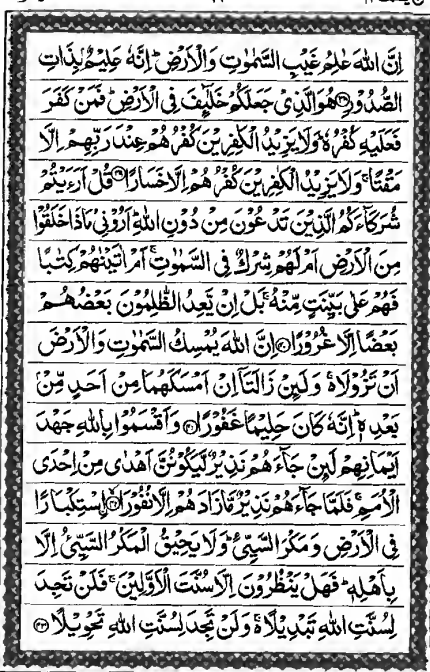 اِنَّ اللّٰهَ عٰلِمُ غَيْبِ السَّمٰوٰتِ وَالْاَرْضِ ؕ اِنَّهٗ عَلِيْمٌۢ بِذَاتِ
الصُّدُوْرِ ﴿۳۸﴾ هُوَ الَّذِيْ جَعَلَكُمْ خَلٰٓئِفَ فِي الْاَرْضِ ؕ فَمَنْ كَفَرَ
فَعَلَيْهِ كُفْرُهٗ ؕ وَلَا يَزِيْدُ الْكٰفِرِيْنَ كُفْرُهُمْ عِنْدَ رَبِّهِمْ اِلَّا
مَقْتًا ۚ وَلَا يَزِيْدُ الْكٰفِرِيْنَ كُفْرُهُمْ اِلَّا خَسَارًا ﴿۳۹﴾ قُلْ اَرَءَيْتُمْ
شُرَكَآءَكُمُ الَّذِيْنَ تَدْعُوْنَ مِنْ دُوْنِ اللّٰهِ ؕ اَرُوْنِيْ مَاذَا خَلَقُوْا
مِنَ الْاَرْضِ اَمْ لَهُمْ شِرْكٌ فِي السَّمٰوٰتِ ۚ اَمْ اٰتَيْنٰهُمْ كِتٰبًا
فَهُمْ عَلٰى بَيِّنَتٍ مِّنْهُ ۚ بَلْ اِنْ يَّعِدُ الظّٰلِمُوْنَ بَعْضُهُمْ
بَعْضًا اِلَّا غُرُوْرًا ﴿۴۰﴾ اِنَّ اللّٰهَ يُمْسِكُ السَّمٰوٰتِ وَالْاَرْضَ
اَنْ تَزُوْلَا ۚ۬ وَلَئِنْ زَالَتَاۤ اِنْ اَمْسَكَهُمَا مِنْ اَحَدٍ مِّنْۢ
بَعْدِهٖ ؕ اِنَّهٗ كَانَ حَلِيْمًا غَفُوْرًا ﴿۴۱﴾ وَاَقْسَمُوْا بِاللّٰهِ جَهْدَ
اَيْمَانِهِمْ لَئِنْ جَآءَهُمْ نَذِيْرٌ لَّيَكُوْنُنَّ اَهْدٰى مِنْ اِحْدَى
الْاُمَمِ ۚ فَلَمَّا جَآءَهُمْ نَذِيْرٌ مَّا زَادَهُمْ اِلَّا نُفُوْرًا ﴿۴۲﴾ اۨسْتِكْبَارًا
فِي الْاَرْضِ وَمَكْرَ السَّيِّئِ ؕ وَلَا يَحِيْقُ الْمَكْرُ السَّيِّئُ اِلَّا
بِاَهْلِهٖ ؕ فَهَلْ يَنْظُرُوْنَ اِلَّا سُنَّتَ الْاَوَّلِيْنَ ۚ فَلَنْ تَجِدَ
لِسُنَّتِ اللّٰهِ تَبْدِيْلًا ۚ۬ وَلَنْ تَجِدَ لِسُنَّتِ اللّٰهِ تَحْوِيْلًا ﴿۴۳﴾